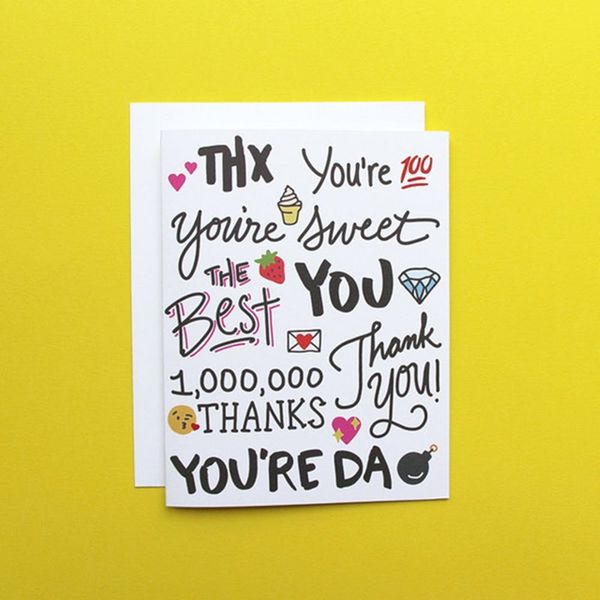 THX You're 100
You're sweet
THE Best YOU
1,000,000 THANKS
Thank you!
YOU'RE DA